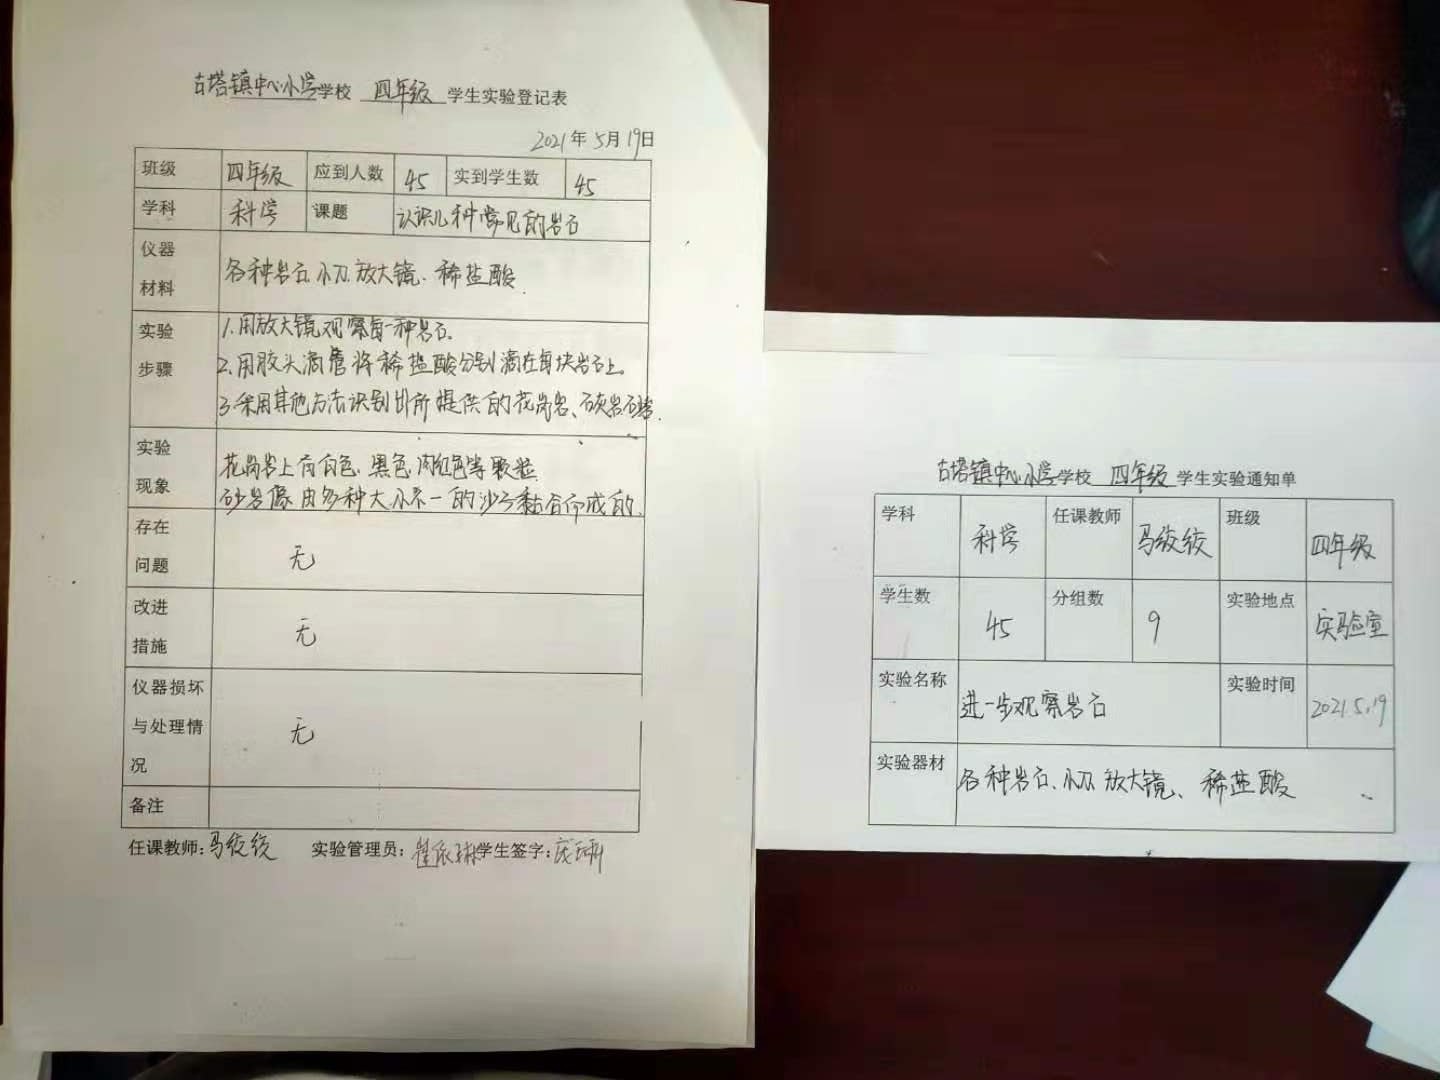 古塔镇中心小学学校 四年级 学生实验登记表
2021年5月19日
班级 四年级 应到人数 45 实到学生数 45
学科 科学 课题 认识几种常见的岩石
仪器
材料
各种岩石、小刀、放大镜、稀盐酸
实验
步骤
1.用放大镜观察每一种岩石。
2.用胶头滴管将稀盐酸分别滴在每块岩石上。
3.采用其他方法识别出所提供的花岗岩、石灰岩
实验
现象
花岗岩上有白色、黑色、肉红色等颗粒
砂岩像由多种大小不一的沙子黏合而成的
存在
问题
无
改进
措施
无
仪器损坏
与处理情
况
无
备注
任课教师:马绞绞 实验管理员: 学生签字:
古塔镇中心小学学校 四年级 学生实验通知单
学科 科学 任课教师 马绞绞 班级 四年级
学生数 45 分组数 9 实验地点 实验室
实验名称 进一步观察岩石 实验时间 2021.5.19
实验器材 各种岩石、小刀、放大镜、稀盐酸